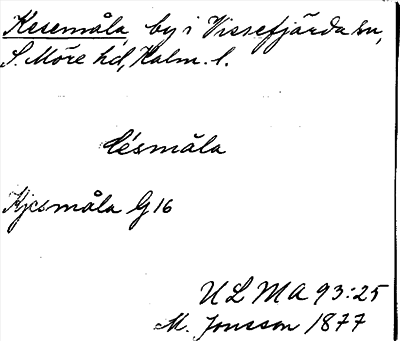 Kesemåla by i Vissefjärda sn,
S. Möre hd, Kalm. l.
késmåla
Kjesmåla G 16
ULMA 93:25
M. Jonsson 1877